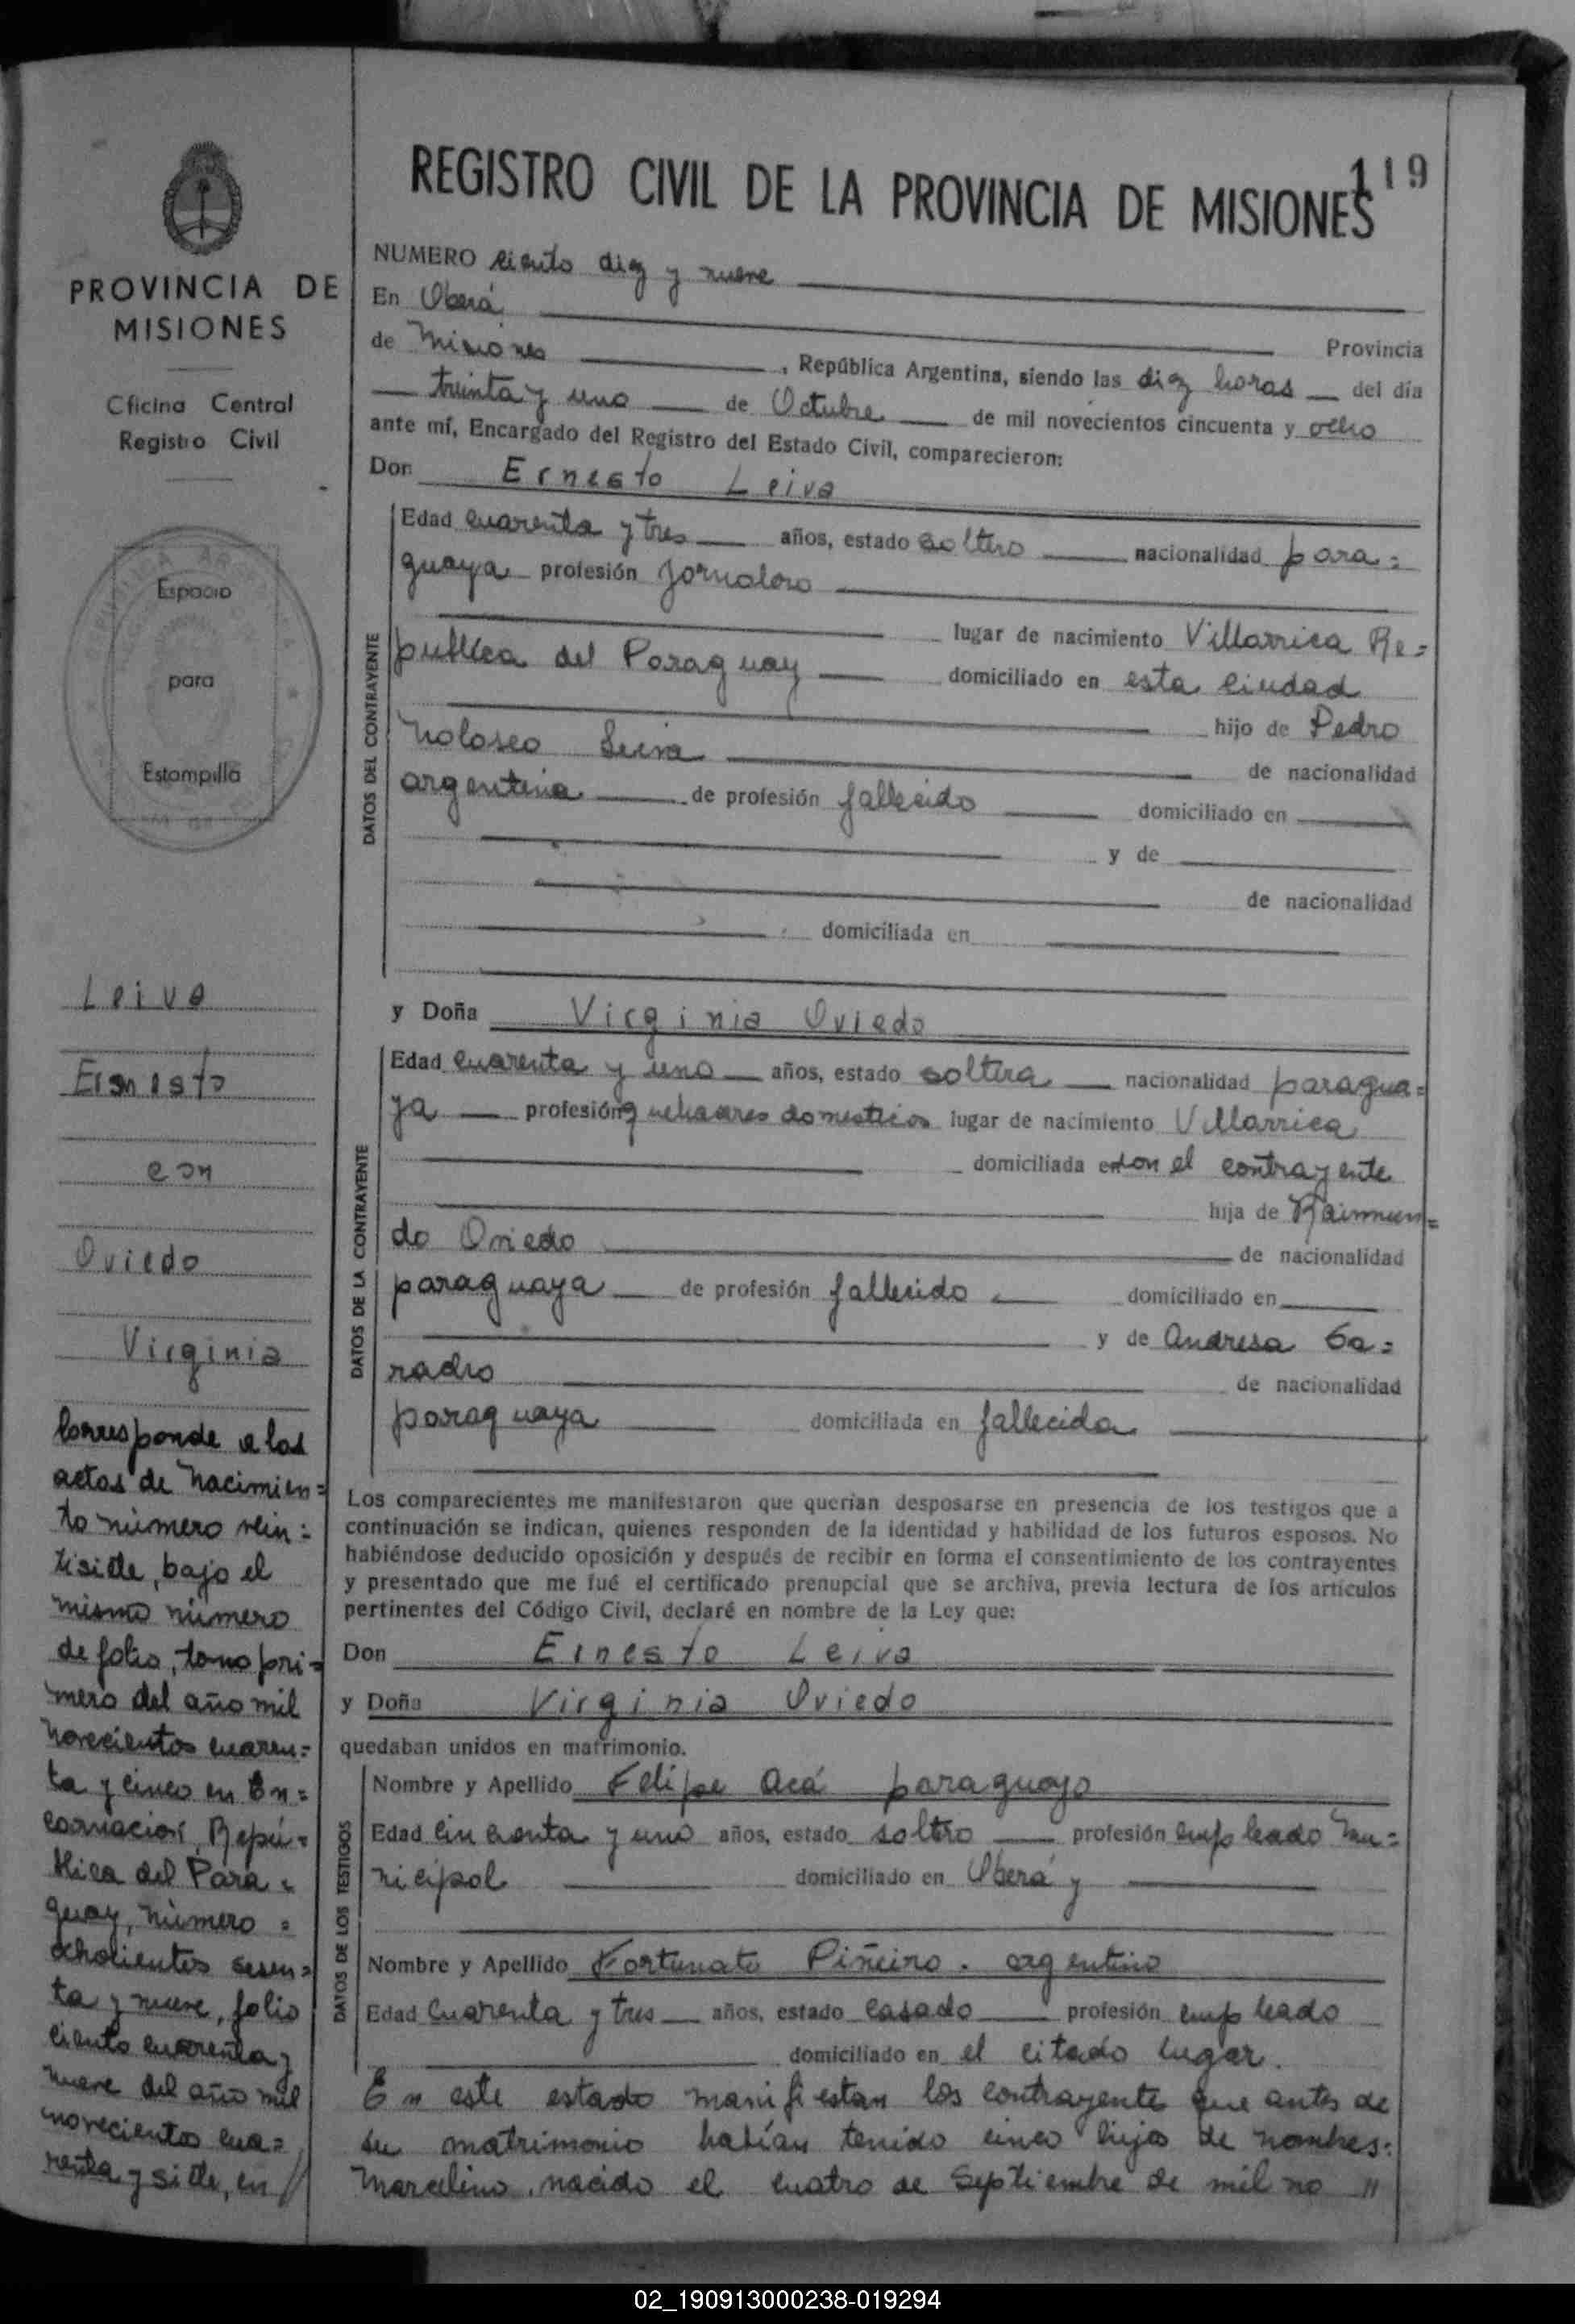 REGISTRO CIVIL DE LA PROVINCIA DE MISIONES
119
PROVINCIA DE
MISIONES
Oficina Central
Registro Civil
Espacio
para
Estampilla
Leiva
Ernesto
con
Oviedo
Virginia
Corresponde a las
actas de nacimien=
to número vein=
tisiete, bajo el
mismo número
de folio, tomo pri=
mero del año mil
novecientos cuaren=
ta y cinco en En=
carnación, Repú=
blica del Para=
guay, número =
ochocientos sesen=
ta y nueve, folio
ciento cuarenta y
nueve del año mil
novecientos cua=
renta y siete, en //
NUMERO ciento diez y nueve
En Oberá
Provincia
de Misiones , República Argentina, siendo las diez horas del día
treinta y uno de Octubre de mil novecientos cincuenta y ocho
ante mí, Encargado del Registro del Estado Civil, comparecieron:
Don Ernesto Leiva
DATOS DEL CONTRAYENTE
Edad cuarenta y tres años, estado soltero nacionalidad para=
guaya profesión jornalero
lugar de nacimiento Villarrica Re=
publica del Paraguay domiciliado en esta ciudad
hijo de Pedro
Nolasco Leiva de nacionalidad
argentina de profesión fallecido domiciliado en
y de
de nacionalidad
domiciliada en
y Doña Virginia Oviedo
DATOS DE LA CONTRAYENTE
Edad cuarenta y uno años, estado soltera nacionalidad paragua=
ya profesión quehaceres domesticos lugar de nacimiento Villarrica
domiciliada en con el contrayente
hija de Raimun=
do Oviedo de nacionalidad
paraguaya de profesión fallecido domiciliado en
y de Andresa
de nacionalidad
paraguaya domiciliada en fallecida
Los comparecientes me manifestaron que querían desposarse en presencia de los testigos que a
continuación se indican, quienes responden de la identidad y habilidad de los futuros esposos. No
habiéndose deducido oposición y después de recibir en forma el consentimiento de los contrayentes
y presentado que me fué el certificado prenupcial que se archiva, previa lectura de los artículos
pertinentes del Código Civil, declaré en nombre de la Ley que:
Don Ernesto Leiva
y Doña Virginia Oviedo
quedaban unidos en matrimonio.
DATOS DE LOS TESTIGOS
Nombre y Apellido Felipe Acá paraguayo
Edad cincuenta y uno años, estado soltero profesión empleado mu=
nicipal domiciliado en Oberá y
Nombre y Apellido Fortunato Piñeiro. argentino
Edad cuarenta y tres años, estado casado profesión empleado
domiciliado en el citado lugar.
En este estado manifiestan los contrayente que antes de
su matrimonio habían tenido cinco hijos de nombres:
Marcelino, nacido el cuatro de Septiembre de mil no //
02_190913000238-019294